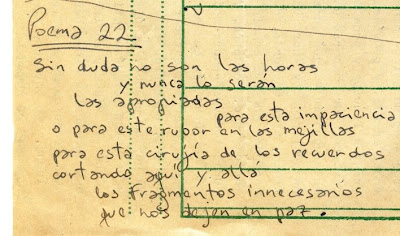 Poema 22
Sin duda no son las horas
y nunca lo serán
las apropiadas
para esta impaciencia
o para este rubor en las mejillas
para esta cirujía de los recuerdos
cortando aquí y allá
los fragmentos innecesarios
que nos dejen en paz.